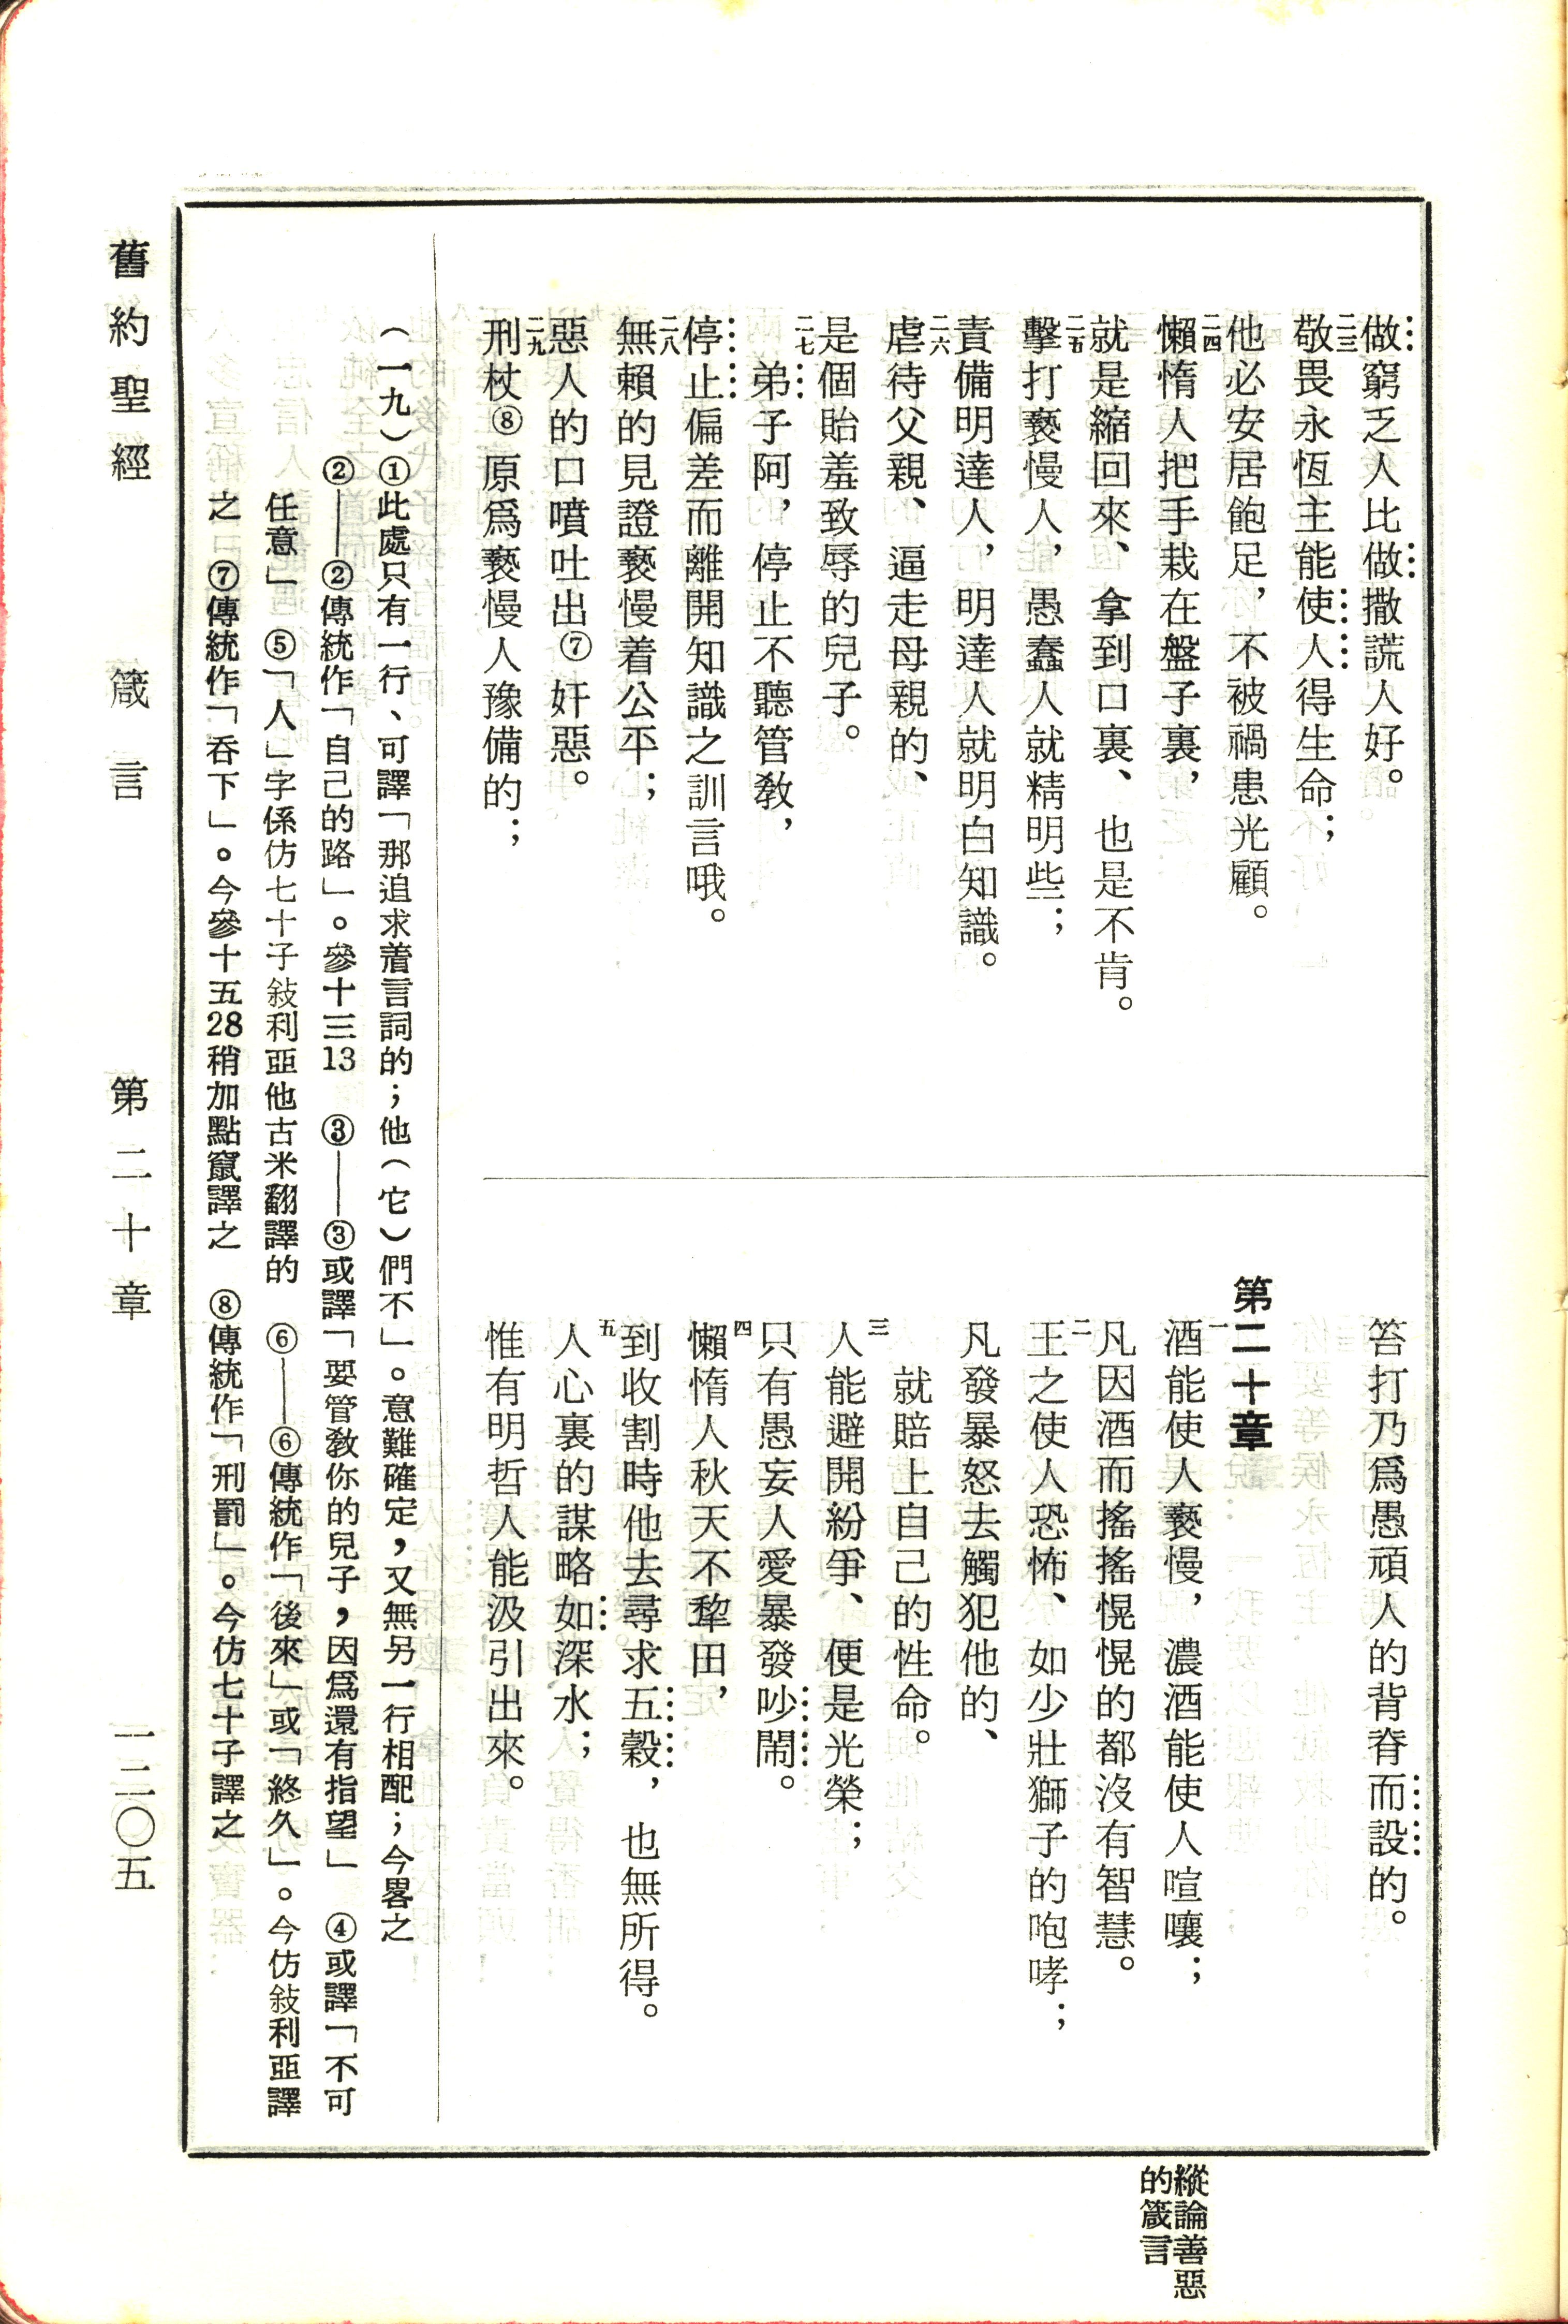 做窮乏人比做撒謊人好。
二三敬畏永恆主能使人得生命；
他必安居飽足，不被禍患光顧。
二四懶惰人把手栽在盤子裏，
就是縮回來、拿到口裏、也是不肯。
二五擊打褻慢人，愚蠢人就精明些；
責備明達人，明達人就明白知識。
二六虐待父親、逼走母親的、
是個貽羞致辱的兒子。
二七弟子阿，停止不聽管教，
停止偏差而離開知識之訓言哦。
二八無賴的見證褻慢着公平；
惡人的口噴吐出⑦奸惡。
二九刑杖⑧原爲褻慢人豫備的；
笞打乃爲愚頑人的背脊而設的。
第二十章
一酒能使人褻慢，濃酒能使人喧嚷；
凡因酒而搖搖愰愰的都沒有智慧。
二王之使人恐怖、如少壯獅子的咆哮；
凡發暴怒去觸犯他的、
就賠上自己的性命。
三人能避開紛爭、便是光榮；
只有愚妄人愛暴發吵鬧。
四懶惰人秋天不犂田，
到收割時他去尋求五穀，也無所得。
五人心裏的謀略如深水；
惟有明哲人能汲引出來。
（一九）①此處只有一行、可譯「那追求着言詞的；他（它）們不」。意難確定，又無另一行相配；今畧之
②——②傳統作「自己的路」。參十三13　③——③或譯「要管教你的兒子，因爲還有指望」　④或譯「不可
任意」　⑤「人」字係仿七十子敍利亞他古米翻譯的　⑥——⑥傳統作「後來」或「終久」。今仿敍利亞譯
之　⑦傳統作「吞下」。今參十五28稍加點竄譯之　⑧傳統作「刑罰」。今仿七十子譯之
舊約聖經　箴言　第二十章　一二〇五
縱論善惡
的箴言